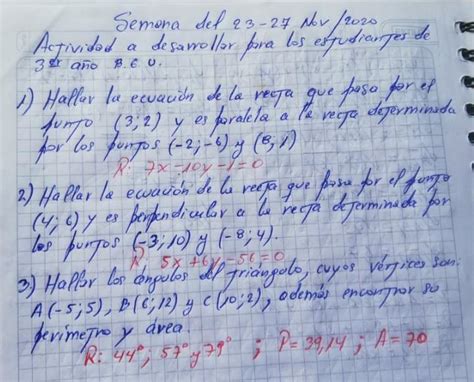 Semana del 23-27 Nov/2020
Actividad a desarrollar para los estudiantes de
3er año B C U.
1) Hallar la ecuación de la recta que pasa por el
punto (3;2) y es paralela a la recta determinada
por los puntos (-2;-6) y (8,1)
R: 7x-10y-1=0
2) Hallar la ecuación de la recta que pasa por el punto
(4;6) y es perpendicular a la recta determinada por
los puntos (-3,10) y (-8;4).
R: 5x+6y-56=0
3) Hallar los ángulos del triangulo, cuyos vértices son:
A(-5;5), B(6;12) y C(10;2), además encontrar su
perímetro y área.
R: 44°; 57° y 79° ; P=39,14; A=70